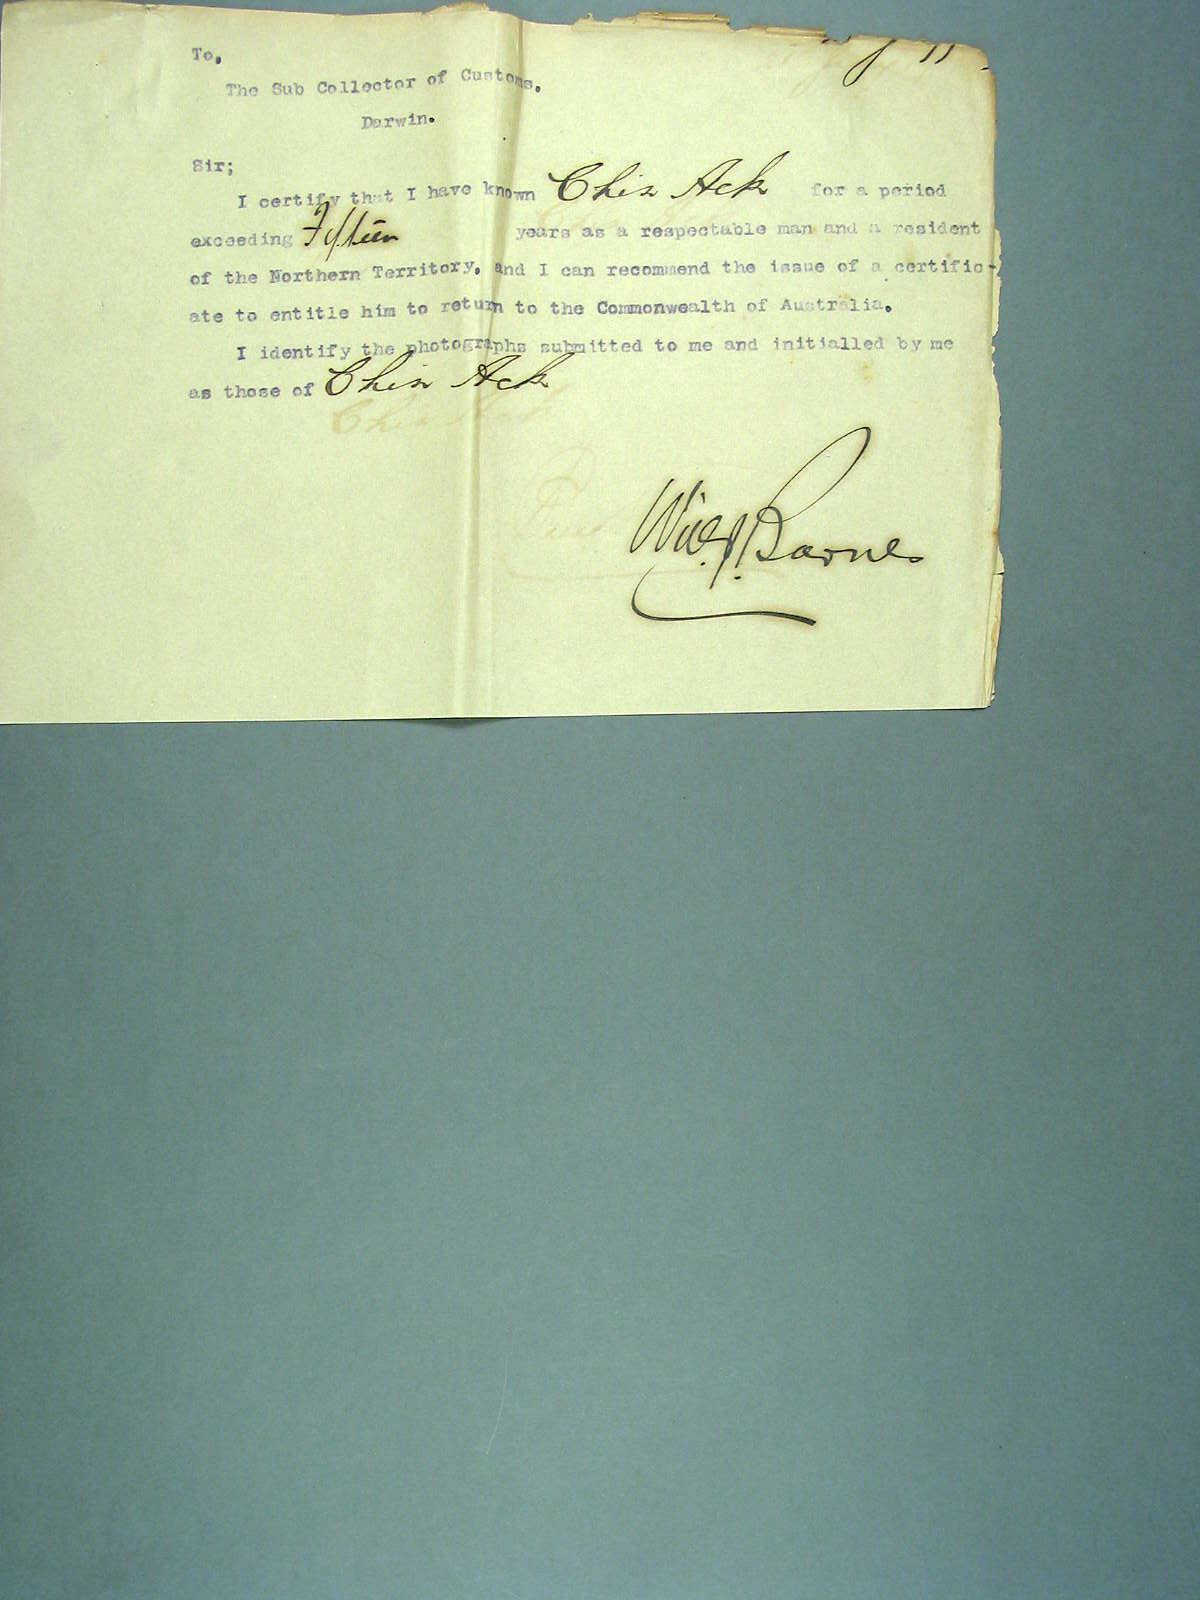 To,
The Sub Collector of Customs.
Darwin.
Sir;
I certify that I have known Chin Ack for a period
exceeding Fifteen years as a respectable man and a resident
of the Northern Territory. and I can recommend the issue of a certific-
ate to entitle him to return to the Commonwealth of Australia.
I identify the photographs submitted to me and initialled by me
as those of Chin Ack
Barnes